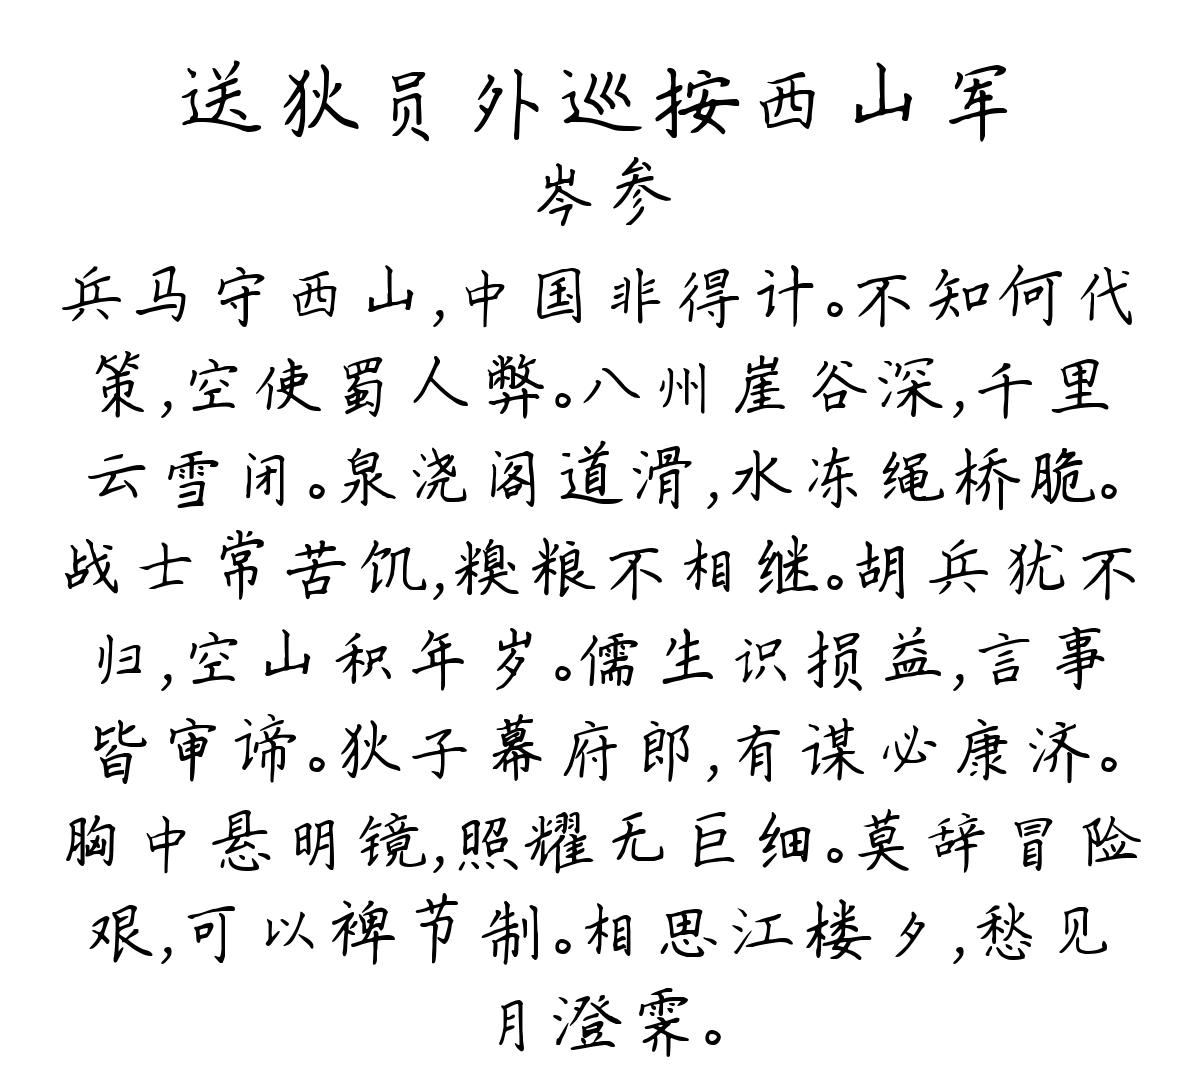 送狄员外巡按西山军
岑参
兵马守西山,中国非得计。不知何代
策,空使蜀人弊。八州崖谷深,千里
云雪闭。泉浇阁道滑,水冻绳桥脆。
战士常苦饥,糗粮不相继。胡兵犹不
归,空山积年岁。儒生识损益,言事
皆审谛。狄子幕府郎,有谋必康济。
胸中悬明镜,照耀无巨细。莫辞冒险
艰,可以裨节制。相思江楼夕,愁见
月澄霁。